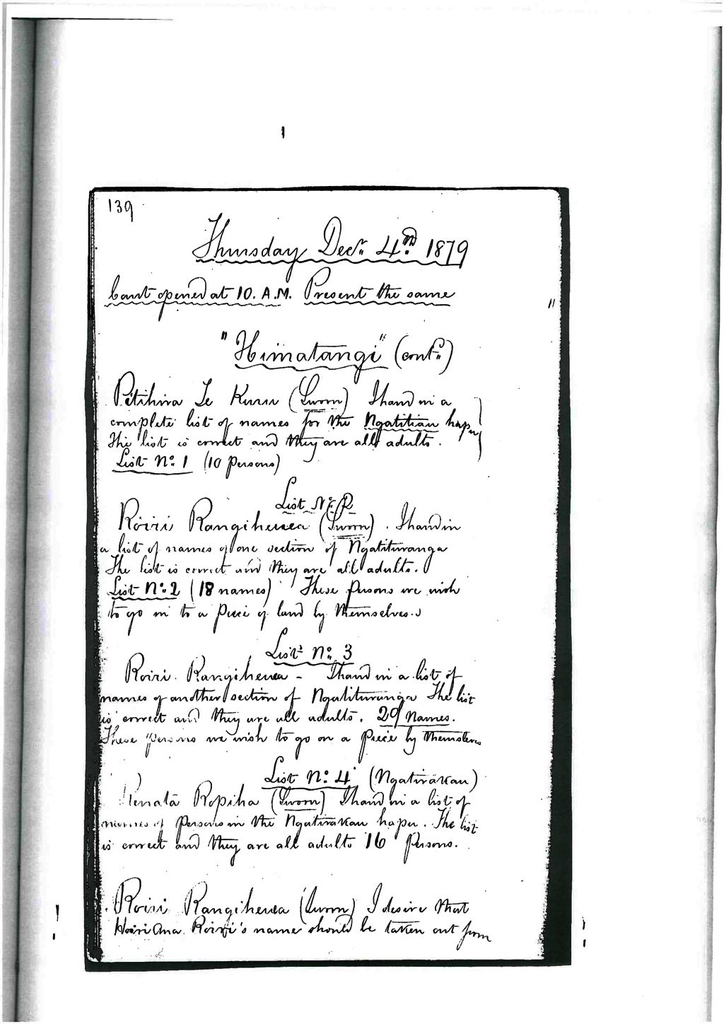 139
Thursday Decr. 4th. 1879
Court opened at 10. A.M. Present the same
"Himatangi" (contd.)
Te Kuru (Sworn) I hand in a
complete list of names for the Ngatitian hapu
The list is correct and they are all adults.
List No. 1 (10 Persons)
List No. 2
Roiri Rangiheuea (Sworn). I hand in
a list of names of one section of Ngatituranga
The list is correct and they are all adults.
List No. 2 (18 names) These Persons we wish
to go in to a Piece of land by themselves.
List No. 3
Roiri Rangiheuea - I hand in a list of
names of another section of Ngatituranga The list
is correct and they are all adults. 29 Names.
These persons we wish to go on a Piece by themselves
List No. 4 (Ngatirakau)
Henata Ropiha (Sworn) I hand in a list of
names of Persons in the Ngatirakau hapu. The list
is correct and they are all adults 16 Persons.
Roiri Rangiheuea (Sworn) I desire that
Ana Roiri's name should be taken out from